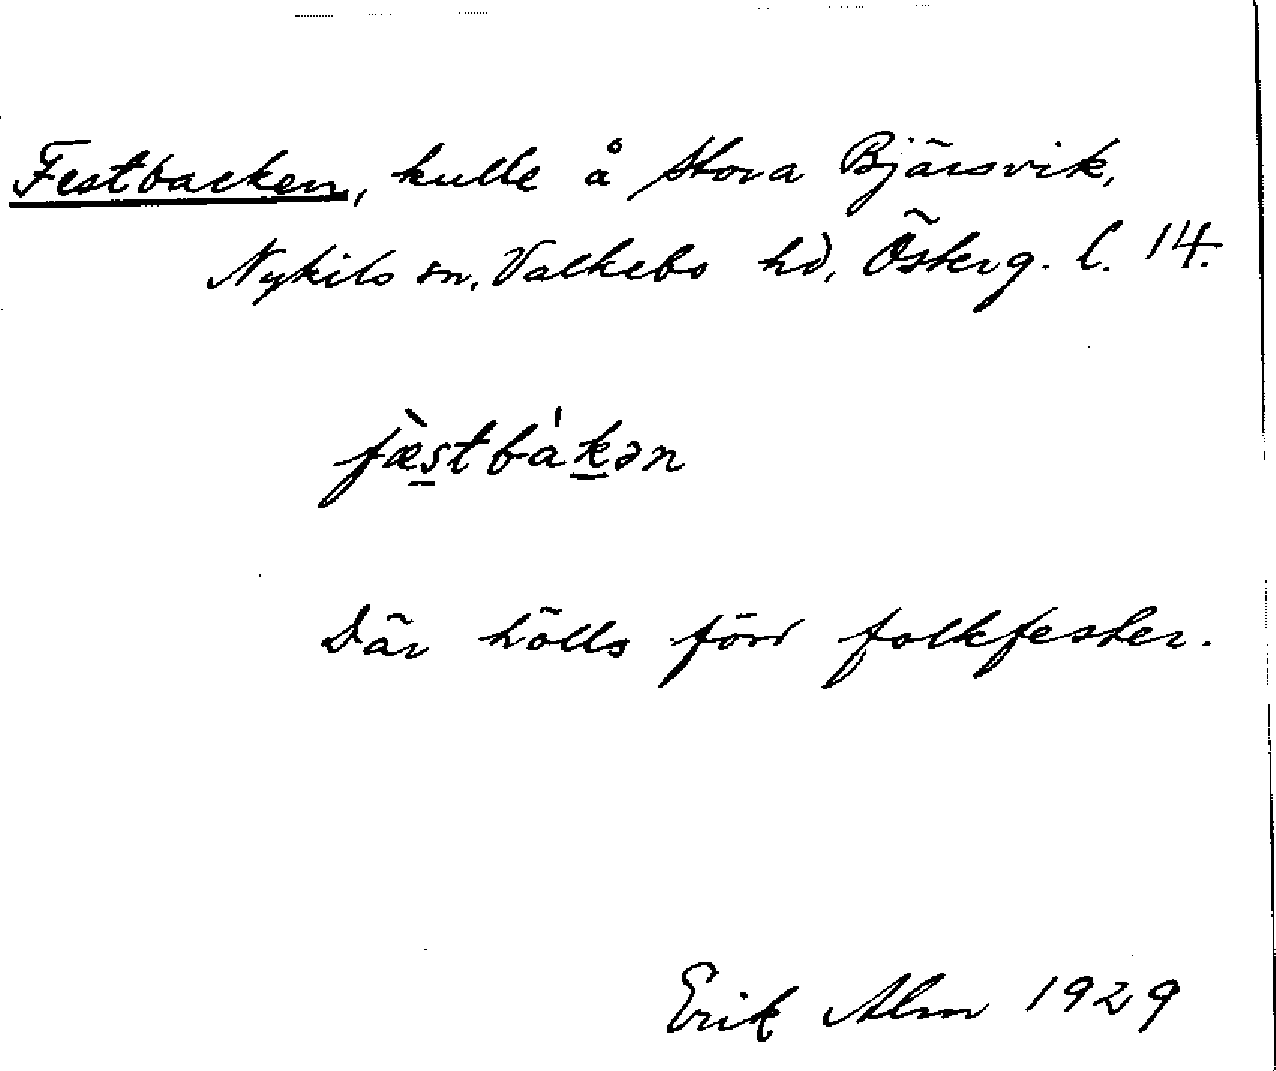 Festbacken, kulle å Stora Bjärsvik,
Nykils sn, Valkebo hd, Österg. l. 14.
fæ̀stbákən
Där hölls förr folkfester.
Erik Alm 1929